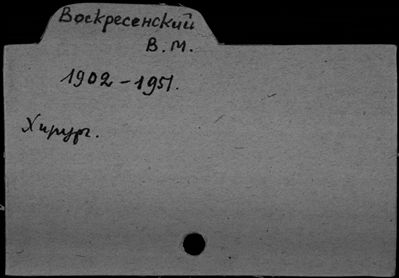 Воскресенский
В. М.
1902 - 1951.
Хирург.